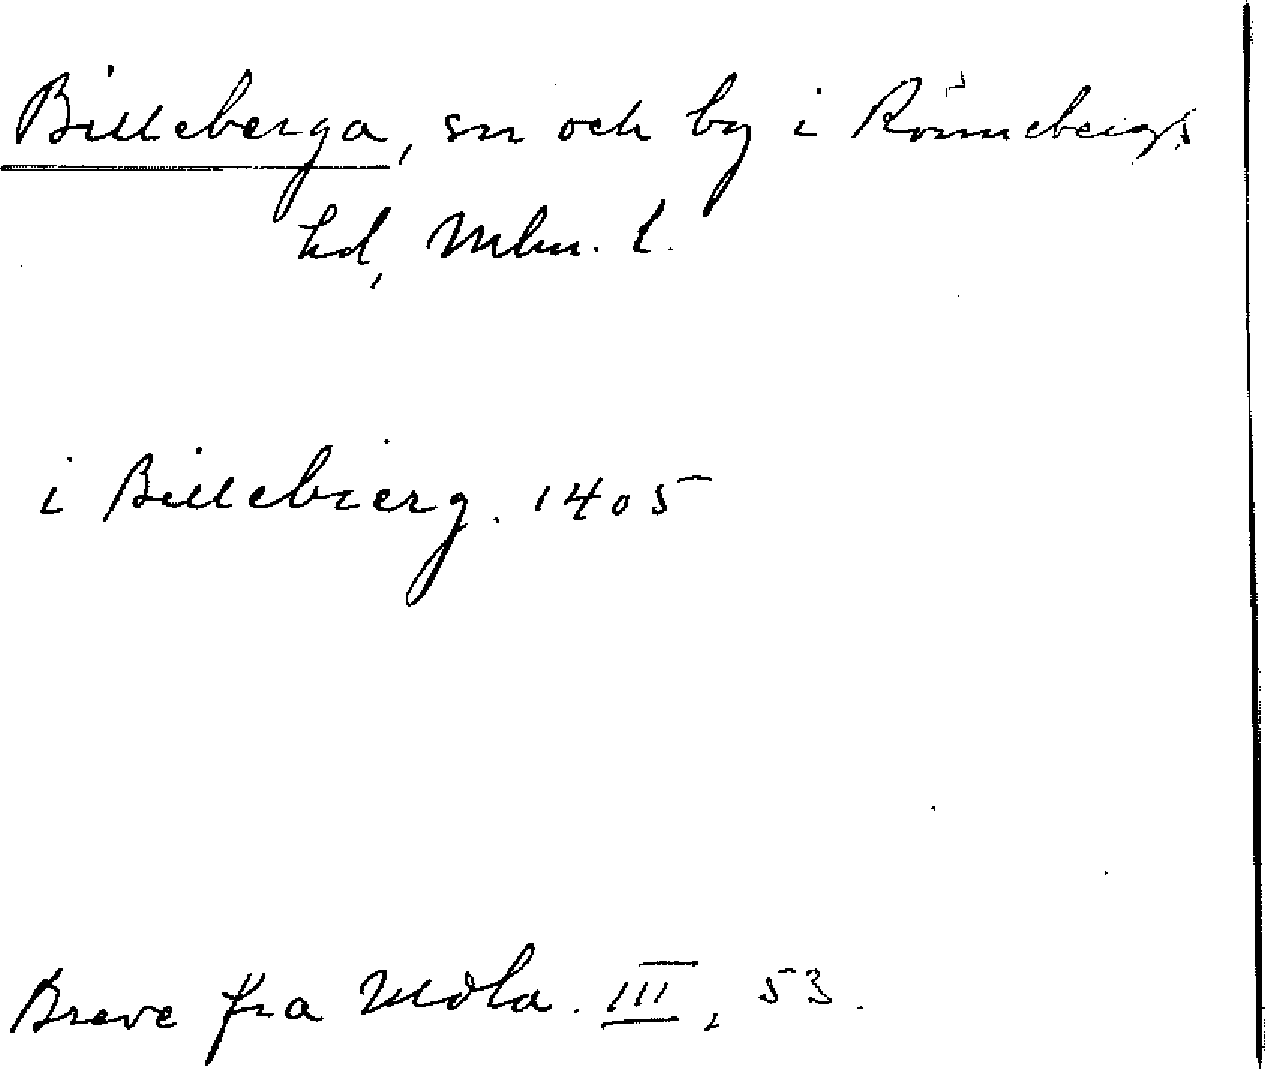 Billeberga, sn och by i Rönnebergs
hd, Mlm. l.
i Billebierg. 1405
Breve fra Mdla. III, 53.